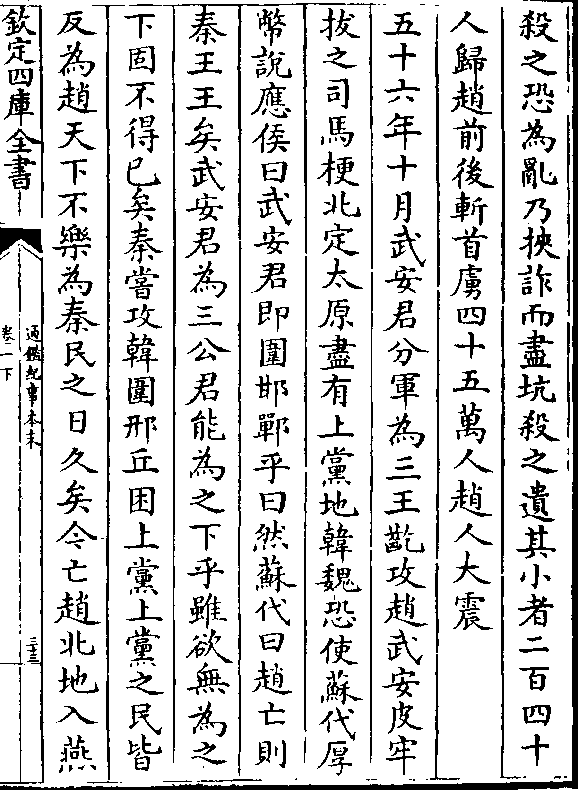 殺之恐為亂乃挾詐而盡坑殺之遺其小者二百四十
人歸趙前後斬首虜四十五萬人趙人大震
五十六年十月武安君分軍為三王齕攻趙武安皮牢
拔之司馬梗北定太原盡有上黨地韓魏恐使蘇代厚
幣說應侯曰武安君即圍邯鄲乎曰然蘇代曰趙亡則
秦王王矣武安君為三公君能為之下乎雖欲無為之
下固不得已矣秦嘗攻韓圍邢丘困上黨上黨之民皆
反為趙天下不樂為秦民之日久矣今亡趙北地入燕
欽定四庫全書
通鑑紀事本末
卷一下
三十三